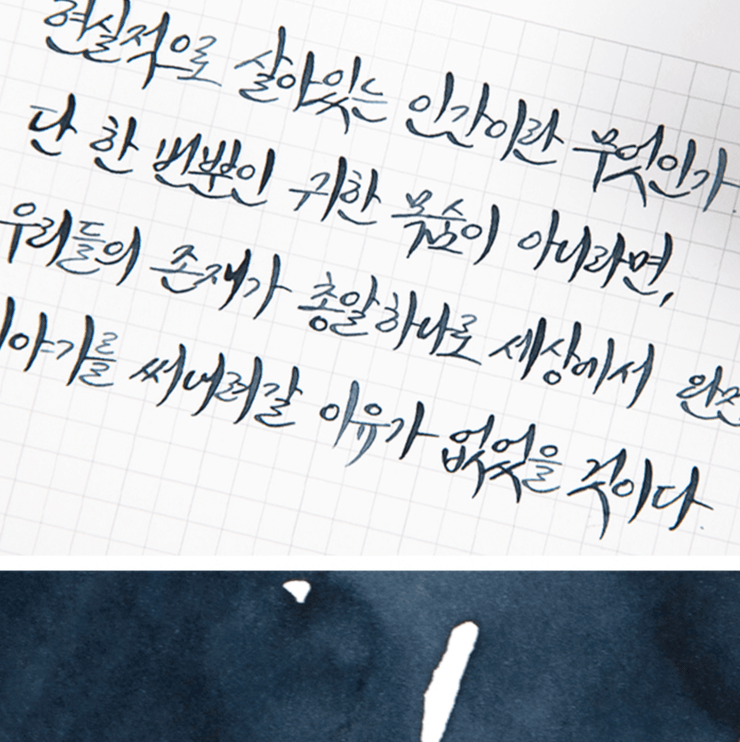 현실적으로 살아있는 인간이란 무엇인가.
단 한 번뿐인 귀한 목숨이 아니라면,
우리들의 존재가 총알하나로 세상에서
이야기를 써내려갈 이유가 없었을 것이다.